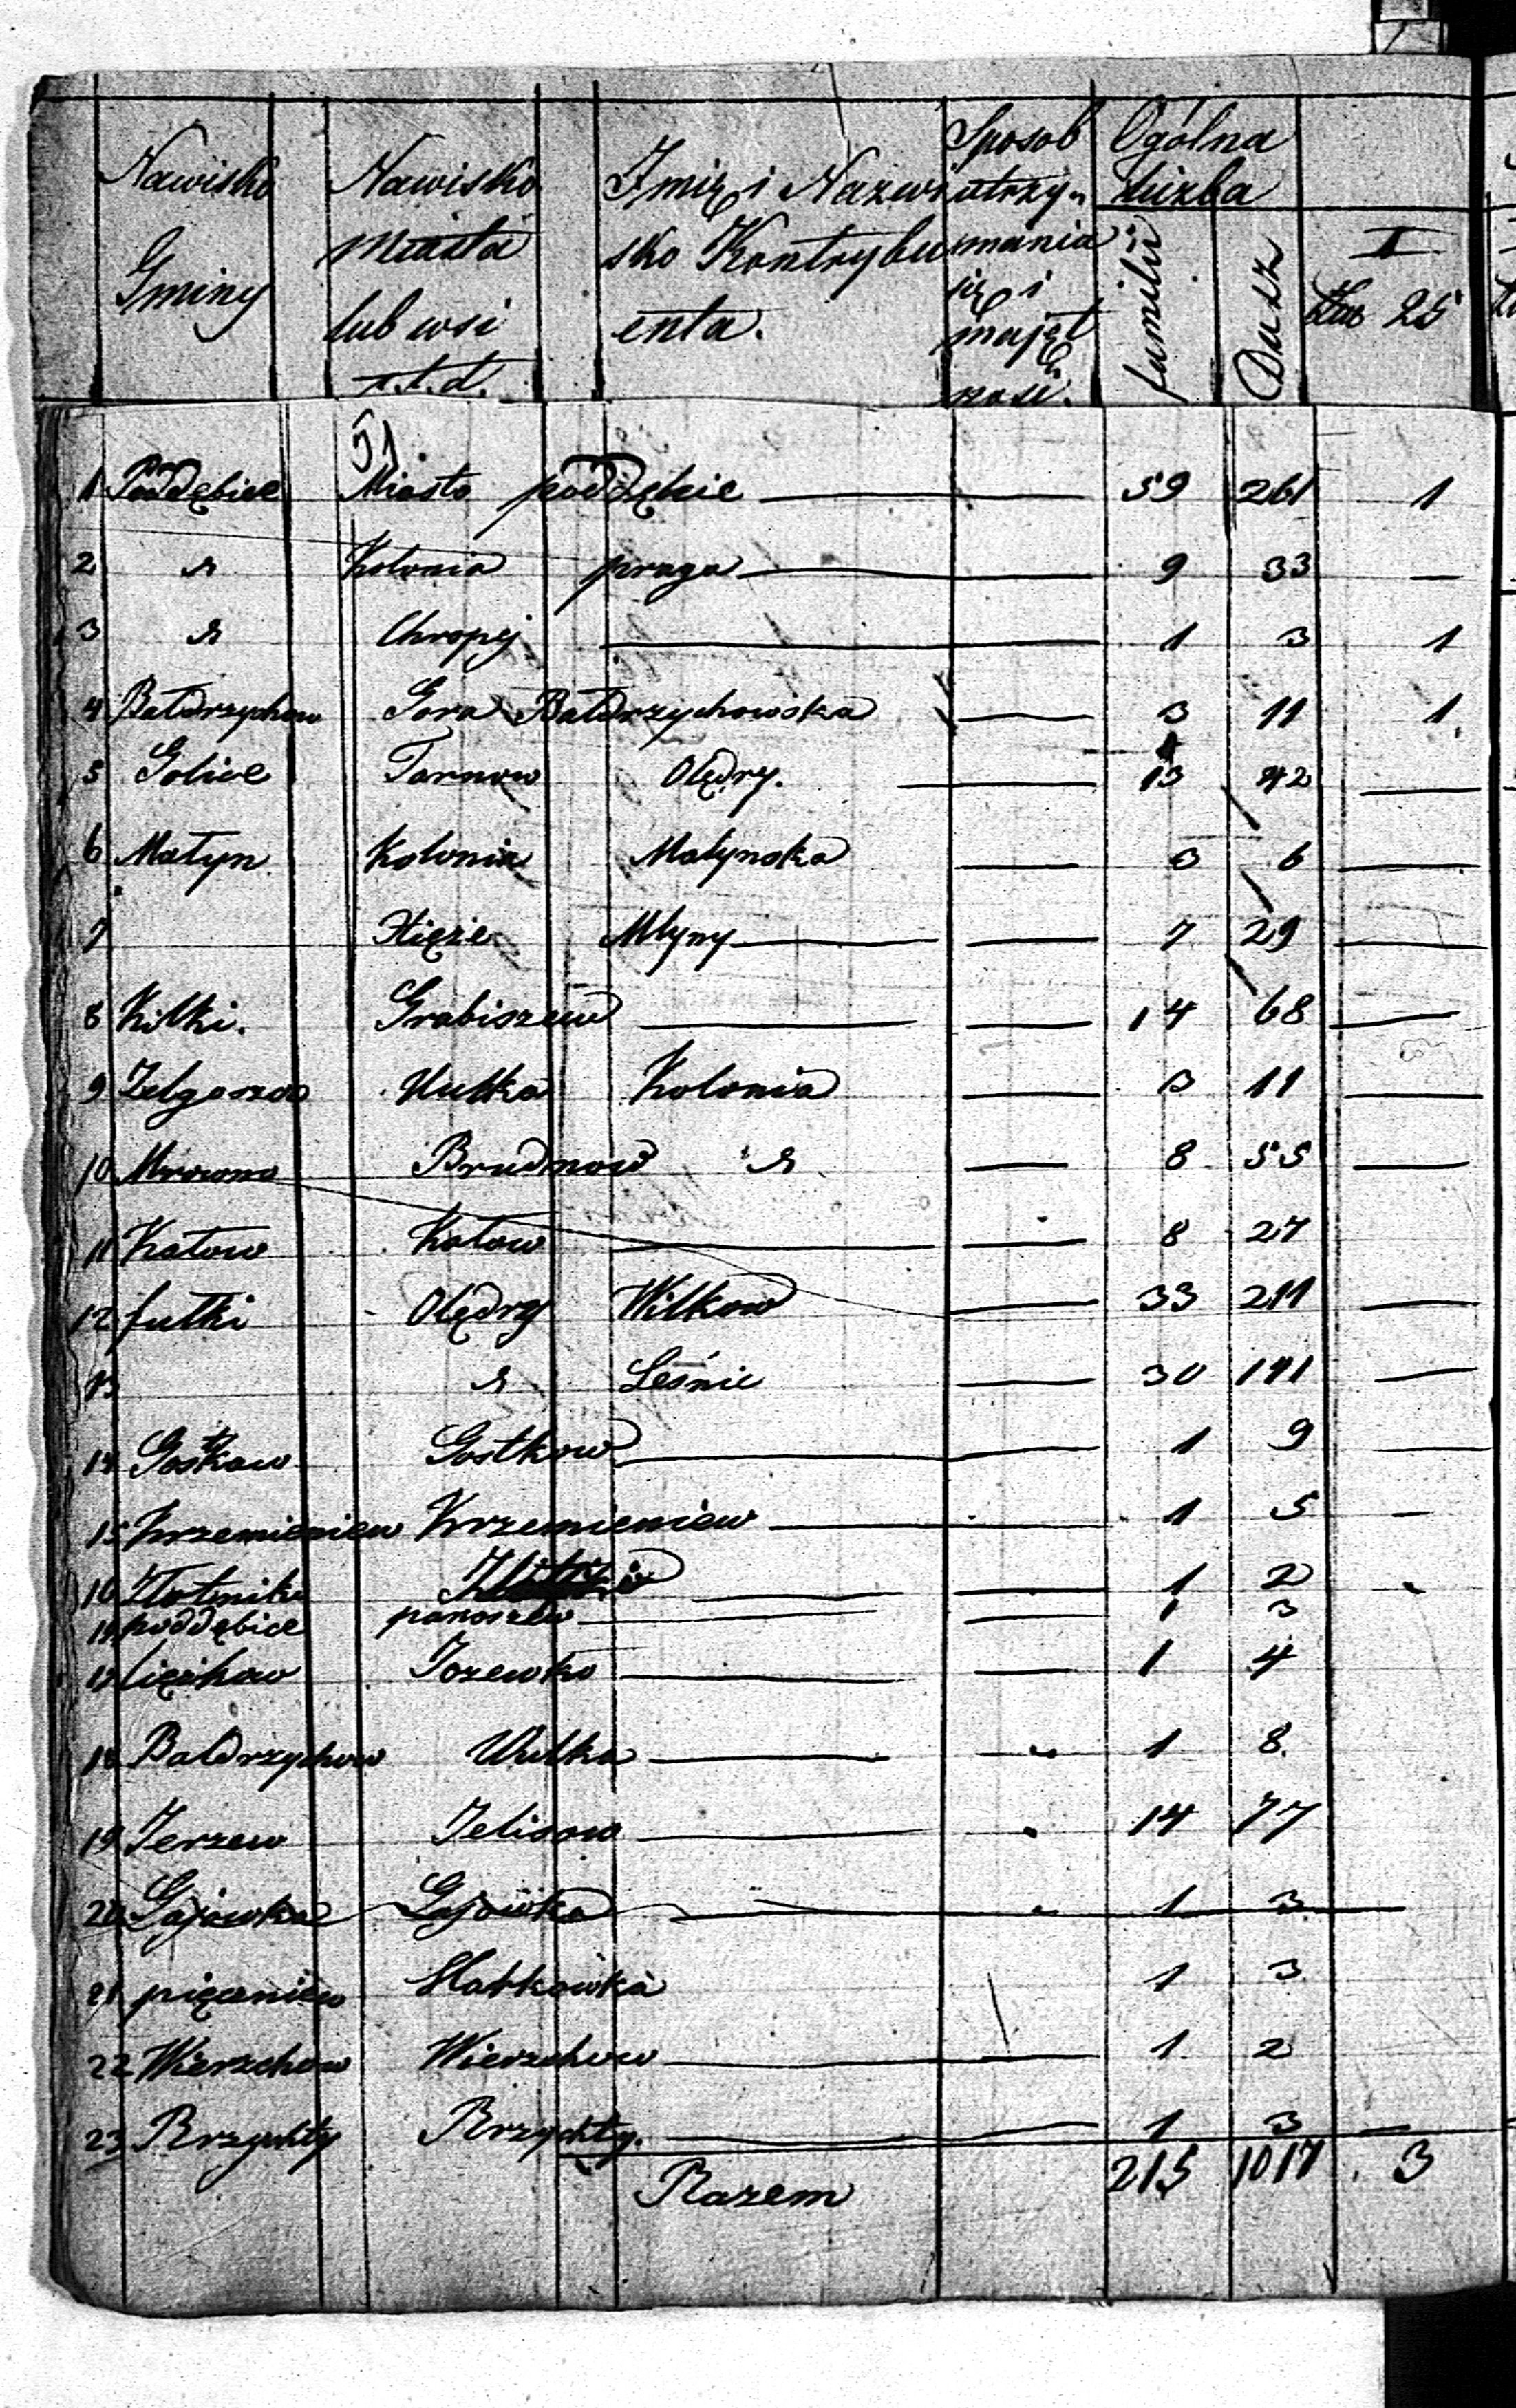 Nawisko Gminy
Nawisko Miasta lub wsi i.t.d.
Imię i Nazwisko Kontrybuenta.
Sposob utrzymania się i majętność.
Ogólna liczba
familii
Dusz
I
Klas 25
51
1 Poddębice Miasto poddębice 59 261 1
2 " Kolonia praga 9 33 —
3 " Chropy 1 3 1
4 Bałdrzychow Gora Bałdrzychowska 3 11 1
5 Golice Tarnow Olędry. 13 42
6 Małyn Kolonia Małynska 3 6
7 Xięże Młyny 7 29
8 Kiłki. Grabiszew 14 68
9 Zelgoszcz Hutka Kolonia 3 11
10 Mrowna Brudnow " 8 55
11 Kałow Kałow 8 27
12 futki Olędry Wilkow 33 211
13 " Leśnie 30 141
14 Gostkow Gostkow 1 9
15 Krzemieniew Krzemieniew 1 5 —
16 Złotniki 1 2
17 poddębice panaszew 1 3
Jozewko 1 4
18 Bałdrzychow Wulka 1 8.
19 Jerzew Jelisow 14 77
20 Gajówka Gajówka 1 3
21 pięcniew 1 3
22 Wierzchow Wierzchow 1 2
23 Brzychty Brzychty. 1 3 —
Razem 215 1017 3